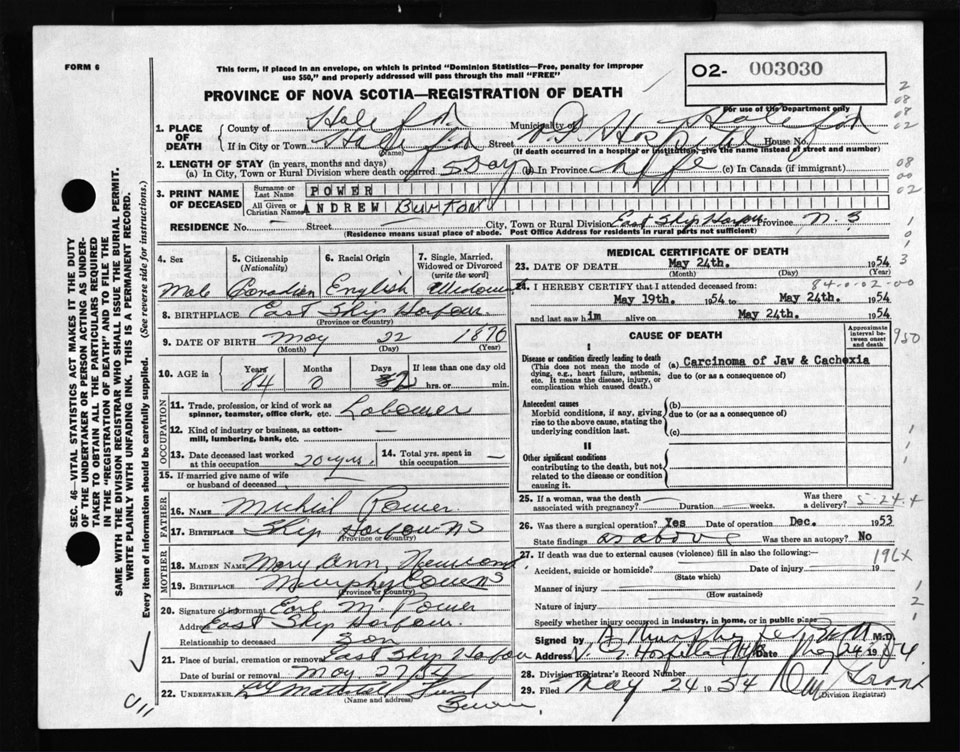 FORM 6
This form, if placed in an envelope, on which is printed "Dominion Statistics—Free, penalty for improper
use $50," and properly addressed will pass through the mail "FREE"
02- 003030
For use of the Department only
PROVINCE OF NOVA SCOTIA—REGISTRATION OF DEATH
1. PLACE OF DEATH
County of Halifax Municipality of Halifax
If in City or Town Halifax (Name) Street V. G. Hospital House No.
(If death occurred in a hospital or institution, give the name instead of street and number)
2. LENGTH OF STAY (in years, months and days)
(a) In City, Town or Rural Division where death occurred 5 days (b) In Province Life (c) In Canada (if immigrant)
3. PRINT NAME OF DECEASED
Surname or Last Name POWER
All Given or Christian Names ANDREW Burton
RESIDENCE No. — Street — City, Town or Rural Division East Ship Harbour Province N. S
(Residence means usual place of abode. Post Office Address for residents in rural parts not sufficient)
4. Sex Male
5. Citizenship (Nationality) Canadian
6. Racial Origin English
7. Single, Married, Widowed or Divorced (write the word) Widower
8. BIRTHPLACE East Ship Harbour
(Province or Country)
9. DATE OF BIRTH May 22 1870
(Month) (Day) (Year)
10. AGE in Years 84 Months 0 Days 2 If less than one day old hrs. or min.
OCCUPATION
11. Trade, profession, or kind of work as spinner, teamster, office clerk, etc. Labourer
12. Kind of industry or business, as cotton-mill, lumbering, bank, etc. —
13. Date deceased last worked at this occupation 20 yrs.
14. Total yrs. spent in this occupation —
15. If married give name of wife or husband of deceased
FATHER
16. Name Michial Power
17. Birthplace Ship Harbour NS
(Province or Country)
MOTHER
18. MAIDEN NAME Mary Ann, Newcomb
19. BIRTHPLACE Murphy Cove NS
(Province or Country)
20. Signature of informant Earl M. Power
Address East Ship Harbour.
Relationship to deceased Son
21. Place of burial, cremation or removal East Ship Harbour
Date of burial or removal May 27/54
22. UNDERTAKER
(Name and address)
MEDICAL CERTIFICATE OF DEATH
23. DATE OF DEATH May 24th. 1954
(Month) (Day) (Year)
84-0-02-00
24. I HEREBY CERTIFY that I attended deceased from:
May 19th. 1954 to May 24th. 1954
and last saw him alive on May 24th. 1954
CAUSE OF DEATH
Approximate interval between onset and death
I
Disease or condition directly leading to death
(This does not mean the mode of dying, e.g., heart failure, asthenia, etc. It means the disease, injury, or complication which caused death.)
(a) Carcinoma of Jaw & Cachexia
due to (or as a consequence of)
Antecedent causes
Morbid conditions, if any, giving rise to the above cause, stating the underlying condition last.
(b)
due to (or as a consequence of)
(c)
II
Other significant conditions
contributing to the death, but not related to the disease or condition causing it.
25. If a woman, was the death associated with pregnancy? Duration weeks. Was there a delivery?
5-24-4
26. Was there surgical operation? Yes Date of operation Dec. 1953
State findings as above Was there an autopsy? No
27. If death was due to external causes (violence) fill in also the following:—
196X
Accident, suicide or homicide? Date of injury 19
(State which)
Manner of injury
(How sustained)
Nature of injury
Specify whether injury occurred in industry, in home, or in public place
Signed by M.D.
Address V. G. Hospital Hfx Date May 24 1954.
28. Division Registrar's Record Number
29. Filed May 24 1954
(Division Registrar)
SEC. 46—VITAL STATISTICS ACT MAKES IT THE DUTY
OF THE UNDERTAKER OR PERSON ACTING AS UNDER-
TAKER TO OBTAIN ALL THE PARTICULARS REQUIRED
IN THE "REGISTRATION OF DEATH" AND TO FILE THE
SAME WITH THE DIVISION REGISTRAR WHO SHALL ISSUE THE BURIAL PERMIT.
WRITE PLAINLY WITH UNFADING INK. THIS IS A PERMANENT RECORD.
Every item of information should be carefully supplied. (See reverse side for instructions.)